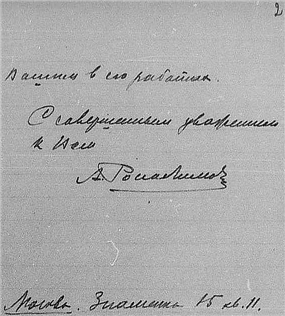 2
Вашим в его работах.
С совершенным уважением
к Вам
А.
Москва. Знаменка 15 кв. 11.